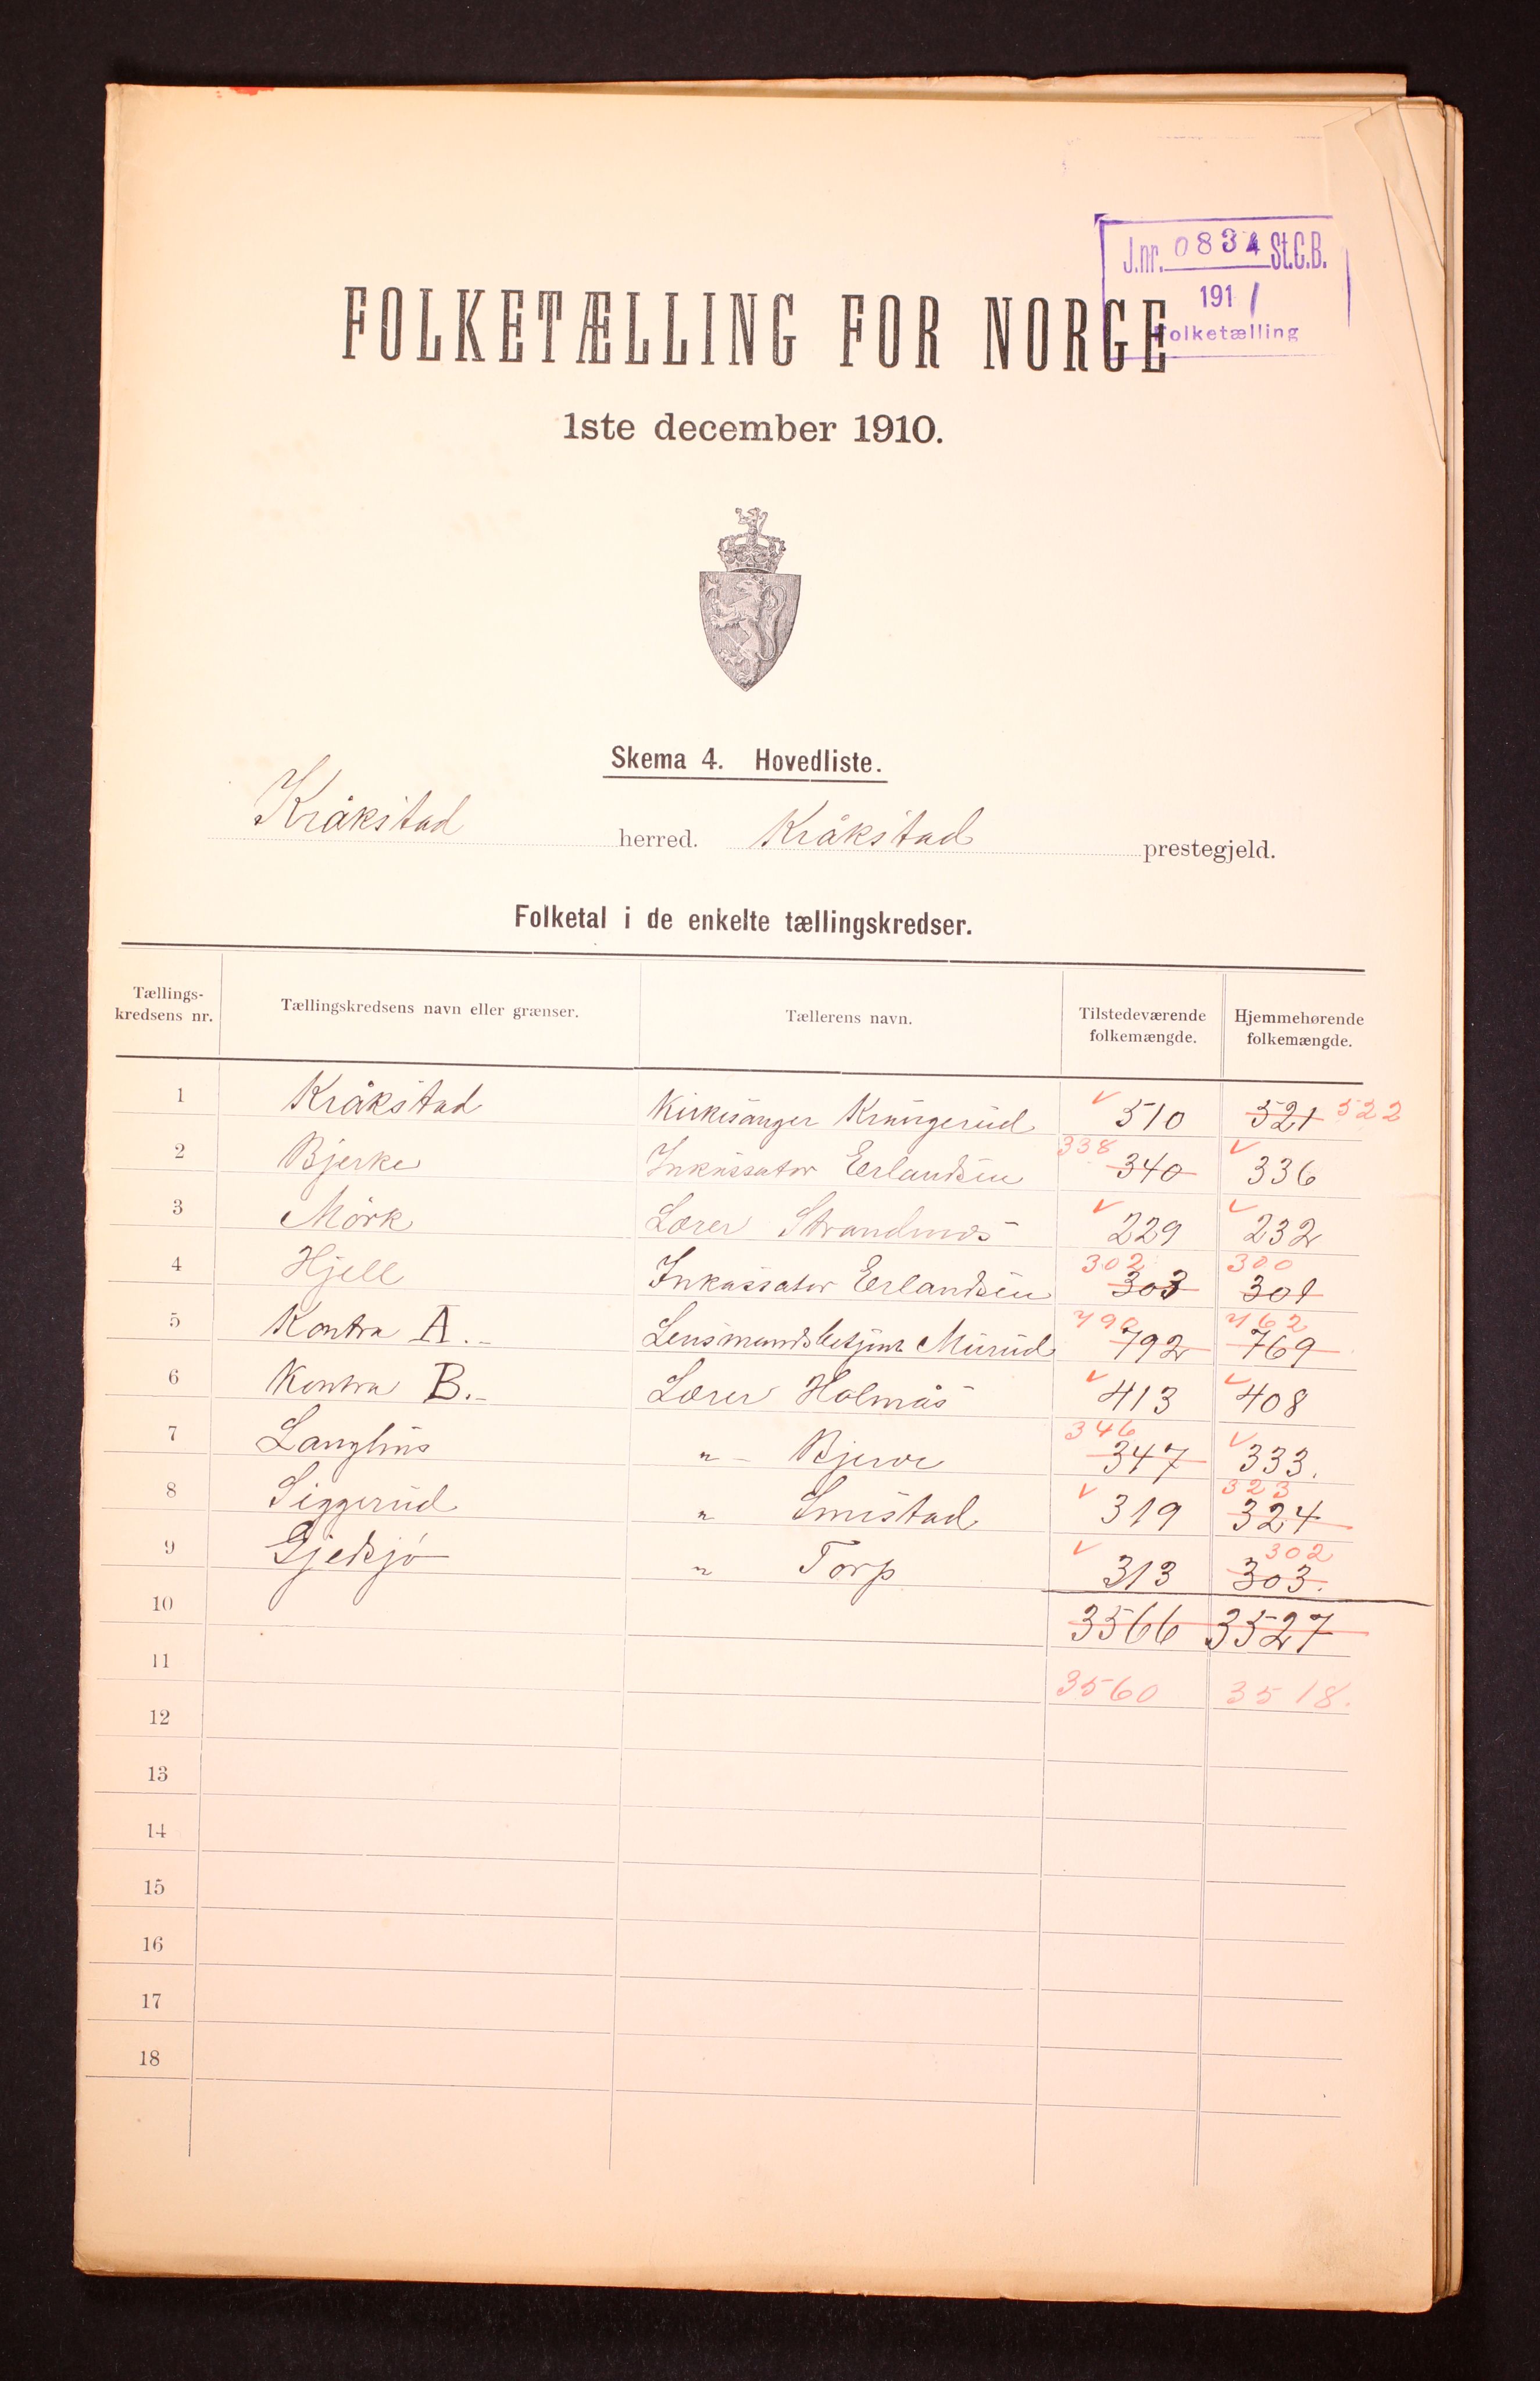 J.nr. 0834 St.C.B.
191 1
Folketælling
FOLKETÆLLING FOR NORGE
1ste december 1910.
Skema 4. Hovedliste.
Kråkstad herred. Kråkstad prestegjeld.
Folketal i de enkelte tællingskredser.
Tællings-kredsens nr. Tællingskredsens navn eller grænser. Tællerens navn. Tilstedeværende folkemængde. Hjemmehørende folkemængde.
1 Kråkstad Kirkesanger Krungerud 510 521 522
2 Bjerke Inkassator Erlandsen 338 340 336
3 Mörk Lærer Strandnæs 229 232
4 Hjell Inkassator Erlandsen 302 303 300 301
5 Kontra A. Lensmandsbetjent Murud 790 792 762 769
6 Kontra B. Lærer Holmås 413 408
7 Langhus " Bjerve 346 347 333.
8 Siggerud " Smestad 319 323 324
9 Gjedsjö " Torp 313 302 303.
10 3566 3527
11 3560 3518.
12
13
14
15
16
17
18